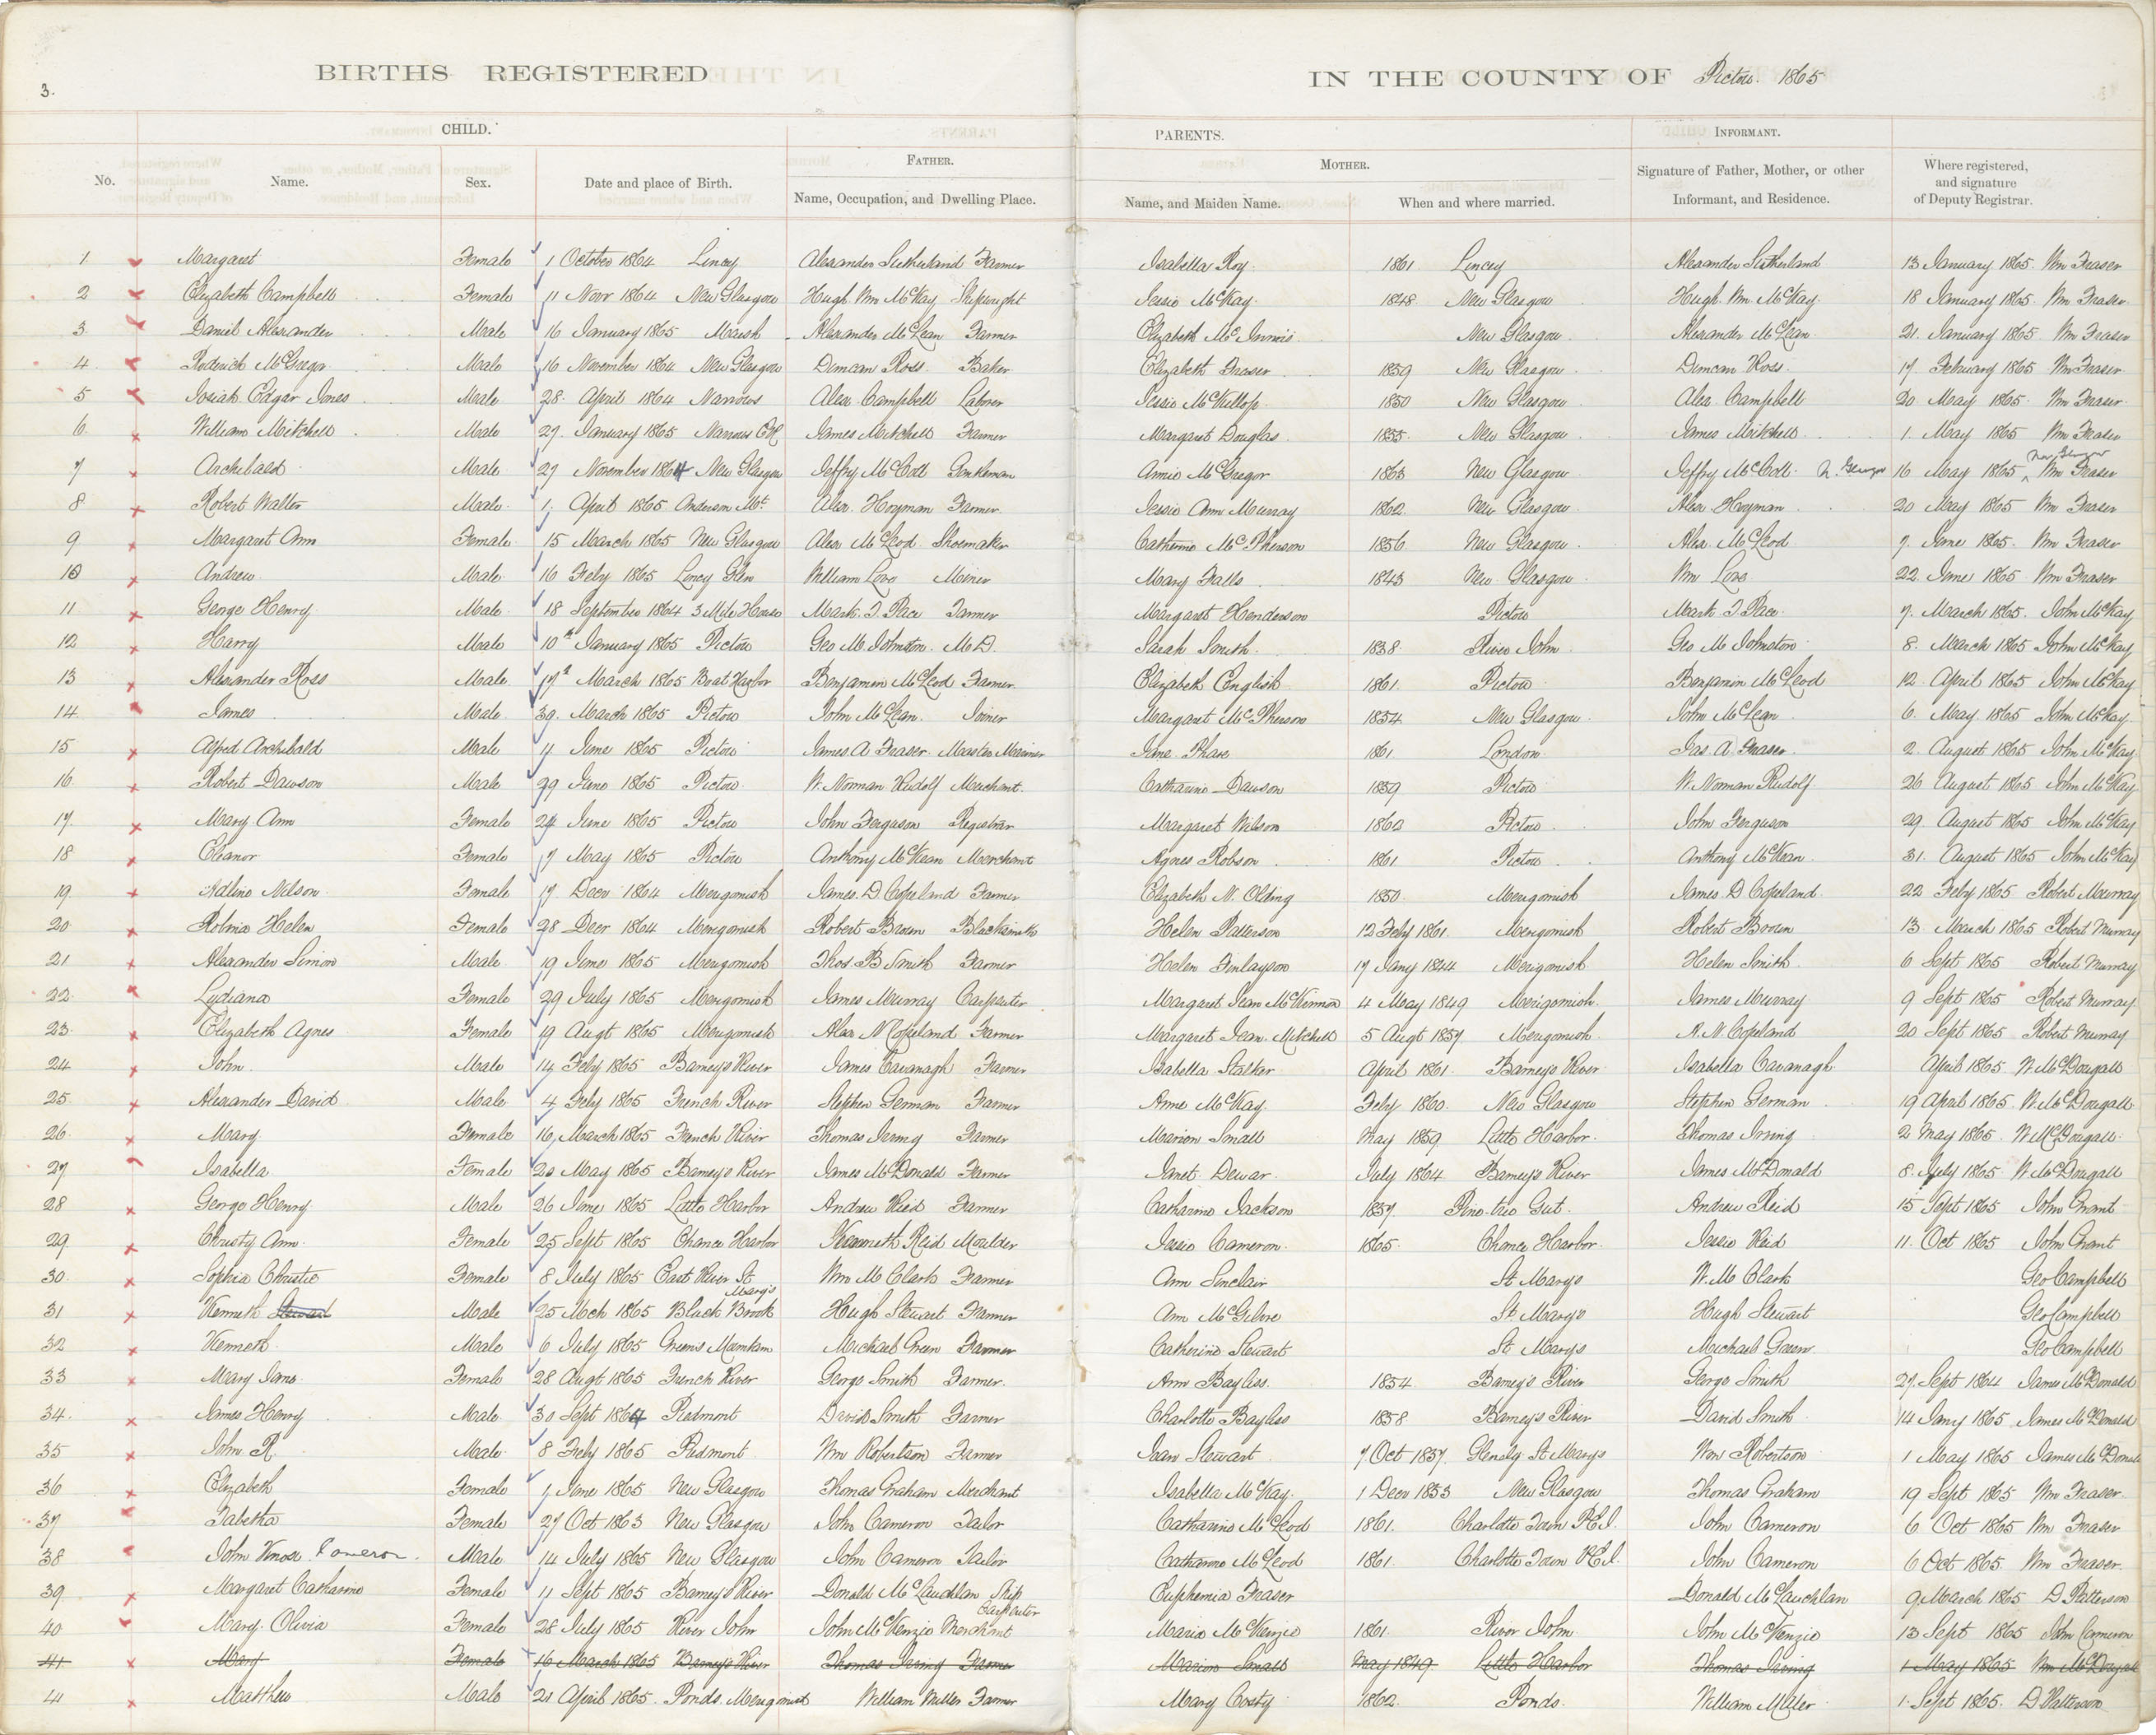 3.
BIRTHS REGISTERED IN THE COUNTY OF Pictou. 1865
CHILD. PARENTS. INFORMANT.
No. Name. Sex. Date and place of Birth. FATHER. Name, Occupation, and Dwelling Place. MOTHER. Name, and Maiden Name. When and where married. Signature of Father, Mother, or other Informant, and Residence. Where registered, and signature of Deputy Registrar.
1. Margaret Female 1 October 1864 Lincy Alexander Sutherland Farmer Isabella Roy. 1861 Lincy Alexander Sutherland 13 January 1865. Wm Fraser
2 Elizabeth Campbell Female 11 Novr 1864 New Glasgow Hugh Wm McKay Shipwright Jessie McKay. 1848 New Glasgow Hugh Wm McKay. 18 January 1865. Wm Fraser
3. Daniel Alexander Male 16 January 1865 Marsh Alexander McLean Farmer Elizabeth McInnis New Glasgow Alexander McLean 21. January 1865 Wm Fraser
4. Roderick McGregor Male 16 November 1864 New Glasgow Duncan Ross Baker Elizabeth Fraser 1859 New Glasgow Duncan Ross. 17 February 1865 Wm Fraser
5 Josiah Edgar Jones Male 28 April 1864 Narrows Alex Campbell Laborer Jessie McKillop 1850 New Glasgow Alex Campbell 20. May 1865 Wm Fraser
6. William Mitchell Male 27. January 1865 Narrows James Mitchell Farmer Margaret Douglas 1855. New Glasgow James Mitchell 1. May 1865 Wm Fraser
7 Archibald Male 27 November 1864 New Glasgow Jeffry McColl Gentleman Annie McGregor 1863 New Glasgow Jeffry McColl. N. Glasgow 16 May 1865 New Glasgow Wm Fraser
8 Robert Walter Male 1. April 1865 Anderson Mt. Alex. Hoyman Farmer Jessie Ann Murray 1862 New Glasgow Alex Hoyman 20 May 1865 Wm Fraser
9 Margaret Ann Female 15 March 1865 New Glasgow Alex McLeod Shoemaker Catherine McPherson 1856 New Glasgow Alex. McLeod 7. June 1865. Wm Fraser
10 Andrew Male 16 Feby 1865 Lincy Glen William Love Miner Mary Falls 1843 New Glasgow Wm Love 22 June 1865 Wm Fraser
11 George Henry Male 18 September 1864 3 Mile House Mark. T. Pace Farmer Margaret Henderson Pictou Mark T Pace. 7. March 1865. John McKay
12 Harry Male 10th January 1865 Pictou Geo M Johnston. M.D. Sarah Smith. 1838 River John Geo M Johnston 8. March 1865 John McKay
13 Alexander Ross Male 17th March 1865 Boat Harbor Benjamin McLeod Farmer Elizabeth English 1861. Pictou Benjamin McLeod 12. April 1865 John McKay
14. James Male 30. March 1865 Pictou John McLean. Joiner Margaret McPherson 1854 New Glasgow. John McLean. 6. May 1865 John McKay
15 Alfred Archibald Male 4 June 1865 Pictou James A Fraser. Master Mariner Jane Phare 1861 London. Jas. A. Fraser. 2. August 1865 John McKay
16. Robert Dawson Male 29 June 1865 Pictou. W. Norman Rudolf Merchant. Catharine Dawson 1859 Pictou W. Norman Rudolf 26 August 1865 John McKay
17. Mary Ann Female 24 June 1865 Pictou John Ferguson Registrar Margaret Wilson 1862 Pictou John Ferguson 29. August 1865 John McKay
18 Eleanor Female 7 May 1865 Pictou Anthony McKean Merchant Agnes Robson 1861 Pictou Anthony McKean 31. August 1865 John McKay
19. Adline Nilson Female 17. Decr 1864 Merigomish James. D Copeland Farmer Elizabeth N. Olding 1850. Merigomish James D Copeland 22 Feby 1865 Robert Murray
20. Rolmia Helen Female 28 Decr 1864 Merigomish Robert Brown Blacksmith Helen Patterson 12 Feby 1861. Merigomish Robert Brown 13 March 1865 Robert Murray
21 Alexander Simon Male 19 June 1865 Merigomish Thos. B Smith Farmer Helen Finlayson 17 Jany 1844 Merigomish Helen Smith 6 Sept 1865 Robert Murray
22. Lydiana Female 29 July 1865 Merigomish James Murray Carpenter Margaret Jean McKinnon 4 May 1849 Merigomish. James Murray 9 Sept 1865 Robert Murray
23. Elizabeth Agnes Female 19 Augt 1865 Merigomish Alex N Copeland Farmer Margaret Jean Mitchell 5 Augt 1857 Merigomish A. N Copeland 20 Sept 1865 Robert Murray
24 John. Male 14 Feby 1865 Barney's River James Cavanagh Farmer Isabella Stalker April 1861. Barney's River Isabella Cavanagh April 1865 W. McDougall
25. Alexander David Male 4 Feby 1865 French River Stephen German Farmer Anne McKay. Feby 1860. New Glasgow Stephen German 19 April 1865. W. McDougall
26. Mary Female 16, March 1865 French River Thomas Irving Farmer Marion Small May 1859 Little Harbor. Thomas Irving 2 May 1865. W. McDougall
27 Isabella Female 20 May 1865 Barney's River James McDonald Farmer Janet Dewar. July 1864 Barney's River James McDonald 8. July 1865 W. McDougall
28 George Henry Male 26 June 1865 Little Harbor Andrew Reid Farmer Catharine Jackson 1857 Pine-tree Gut. Andrew Reid 15 Sept 1865 John Grant
29 Christy Ann Female 25 Sept 1865 Chance Harbor Kenneth Reid Moulder Jessie Cameron. 1865. Chance Harbor. Jessie Reid 11. Oct 1865 John Grant
30. Sophia Christie Female 8 July 1865 East River St Mary's Wm McClark Farmer Ann Sinclair St Mary's W. M Clark Geo Campbell
31 Kenneth Stewart Male 25 Mch 1865 Black Brook Hugh Stewart Farmer Ann McGilvre St. Mary's Hugh Stewart Geo Campbell
32 Kenneth Male 6 July 1865 Green's Mountain Michael Green Farmer Catherine Stewart St Mary's Michael Green Geo Campbell
33 Mary Jane Female 28 Augt 1865 French River George Smith Farmer. Ann Bayliss. 1854 Barney's River George Smith 27. Sept 1864 James McDonald
34. James Henry Male 30 Sept 1864 Piedmont David Smith Farmer Charlotte Bayliss 1858 Barney's River David Smith 14 Jany 1865 James McDonald
35 John R. Male 8 Feby 1865 Piedmont Wm Robertson Farmer Jean Stewart 7 Oct 1857. Glenelg St Mary's Wm Robertson 1 May 1865 James McDonald
36 Elizabeth Female 1. June 1865. New Glasgow Thomas Graham Merchant Isabella McKay. 1 Decr 1853 New Glasgow Thomas Graham 19 Sept 1865 Wm Fraser.
37 Tabetha Female 27 Oct 1863 New Glasgow John Cameron Tailor Catharine McLeod 1861. Charlotte Town P.E.I. John Cameron 6 Oct 1865 Wm Fraser
38 John Knox Cameron. Male 14 July 1865 New Glasgow John Cameron Tailor Catharine McLeod 1861 Charlotte Town P.E.I. John Cameron 6 Oct 1865. Wm Fraser.
39 Margaret Catharine Female 11 Sept 1865 Barney's River Donald McLauchlan Ship Carpenter Euphemia Fraser Donald McLauchlan 9 March 1865 D Patterson
40 Mary. Olivia Female 28 July 1865 River John John McKenzie Merchant Maria McKenzie 1861. River John John McKenzie 13 Sept 1865 John Cameron
41 Mary Female 16 March 1865 Barney's River Thomas Irving Farmer Marion Small May 1849. Little Harbor Thomas Irving 1 May 1865 Wm McDougall
41 Matthew Male 21 April 1865. Ponds. Merigomish William Miller Farmer Mary Costy 1862. Ponds. William Miller 1. Sept 1865. D Patterson